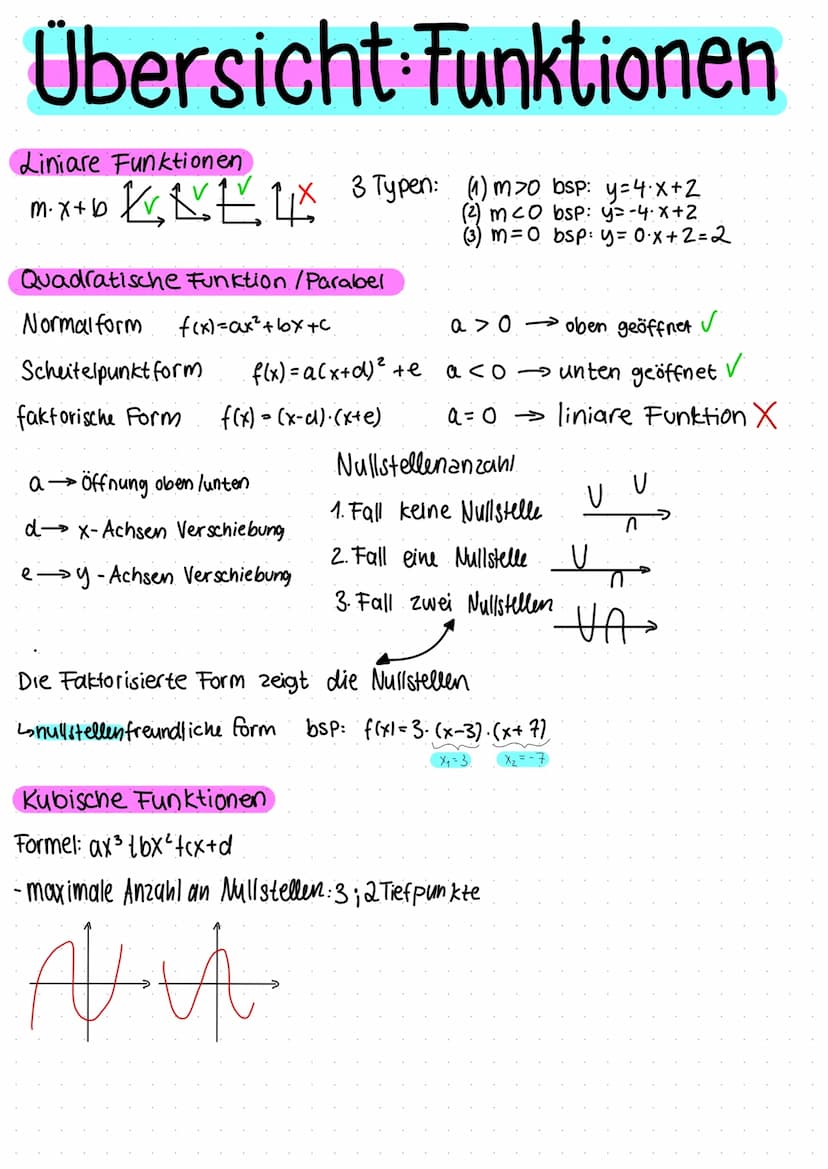 Übersicht: Funktionen
Liniare Funktionen
m·x+b
3 Typen: (1) m>0 bsp: y=4·x+2
(2) m<0 bsp: y=-4·x+2
(3) m=0 bsp: y=0·x+2=2
Quadratische Funktion/Parabel
Normalform f(x)=ax²+bx+c a>0 → oben geöffnet ✓
Scheitelpunktform f(x)=a(x+d)²+e a<0 → unten geöffnet ✓
faktorische Form f(x)=(x-d)·(x+e) a=0 → liniare Funktion X
a → Öffnung oben/unten
d → x-Achsen Verschiebung
e → y-Achsen Verschiebung
Nullstellenanzahl
1. Fall keine Nullstelle
2. Fall eine Nullstelle
3. Fall zwei Nullstellen
Die Faktorisierte Form zeigt die Nullstellen
↳nullstellenfreundliche Form bsp: f(x)=3·(x-3)·(x+7)
x₁=3 x₂=-7
Kubische Funktionen
Formel: ax³+bx²+cx+d
-maximale Anzahl an Nullstellen: 3; 2 Tiefpunkte